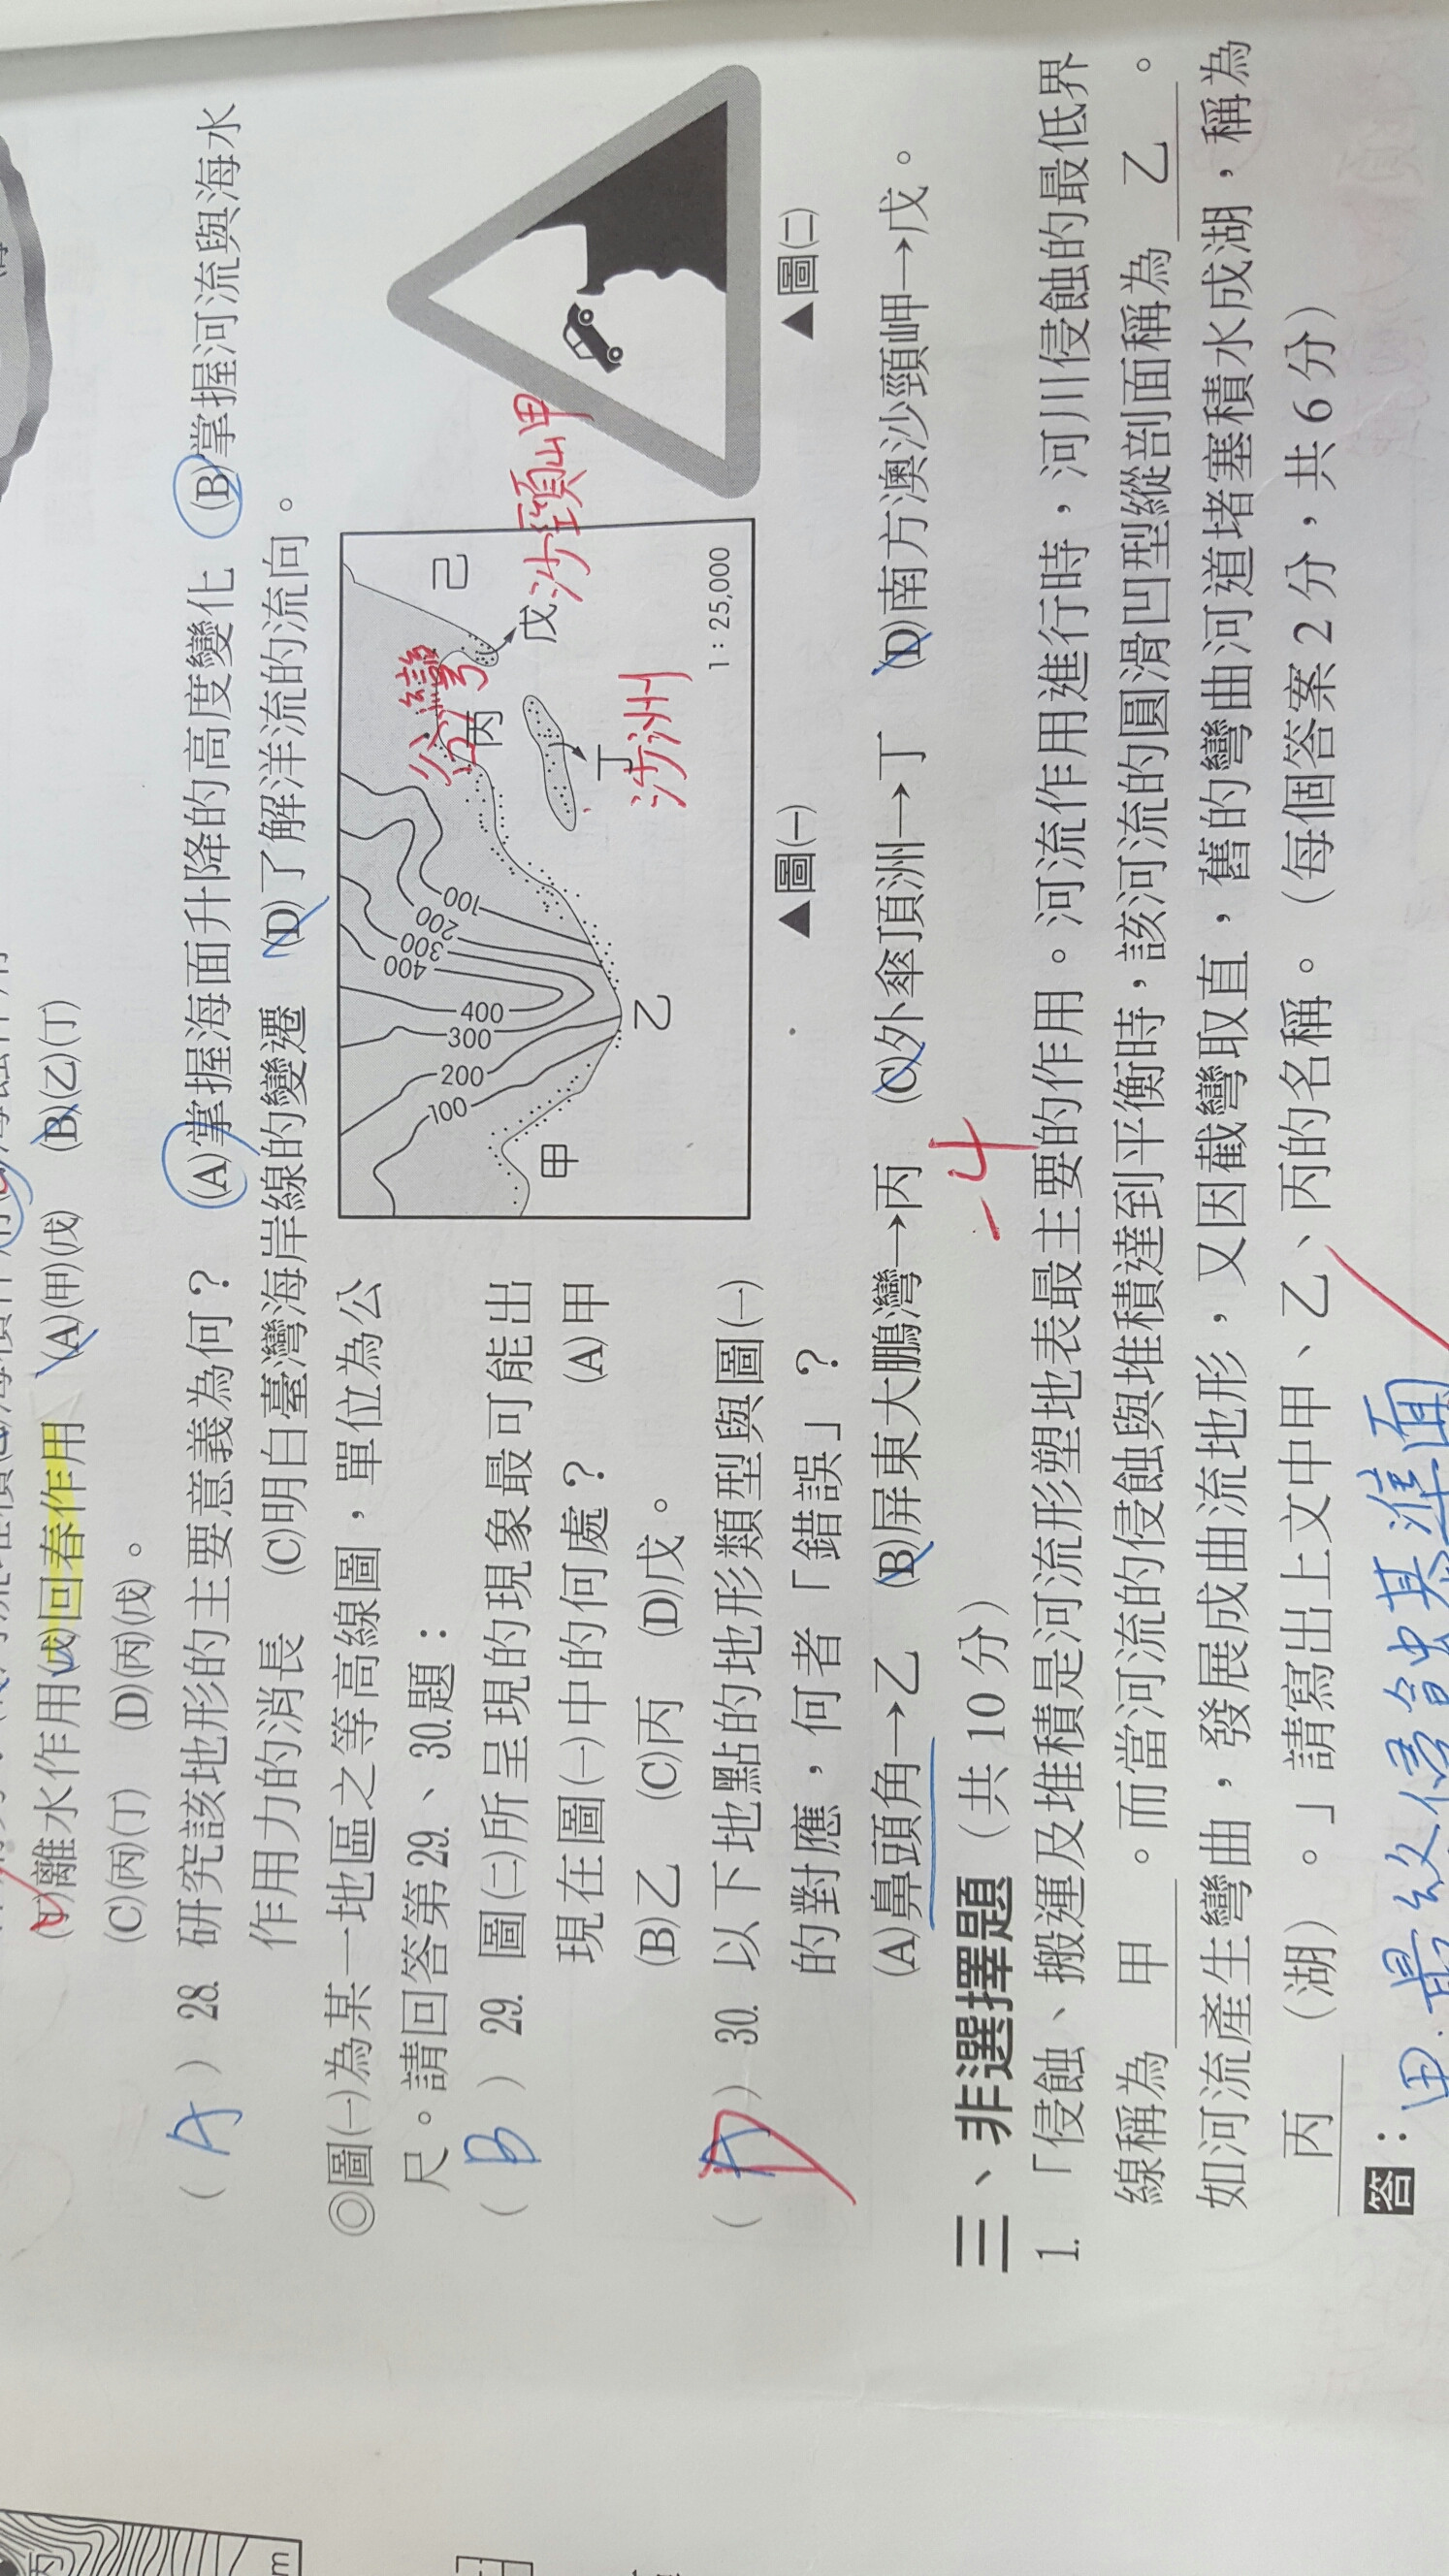 (丁)離水作用(戊)回春作用 (A)(甲)(戊) (B)(乙)(丁)
(C)(丙)(丁) (D)(丙)(戊)。
( A ) 28. 研究該地形的主要意義為何? (A)掌握海面升降的高度變化 (B)掌握河流與海水
作用力的消長 (C)明白臺灣海岸線的變遷 (D)了解洋流的流向。
◎圖㈠為某一地區之等高線圖,單位為公
尺。請回答第29.、30.題:
( B ) 29. 圖㈡所呈現的現象最可能出
現在圖㈠中的何處? (A)甲
(B)乙 (C)丙 (D)戊。
( A ) 30. 以下地點的地形類型與圖㈠
的對應,何者「錯誤」?
(A)鼻頭角→乙 (B)屏東大鵬灣→丙 (C)外傘頂洲→丁 (D)南方澳沙頸岬→戊。
400
300
200
100
400
300
200
100
甲
乙
丙
丁
戊
己
沙洲
沙頸岬
1:25,000
▲圖㈠
▲圖㈡
-4
三、非選擇題(共 10 分)
1. 「侵蝕、搬運及堆積是河流形塑地表最主要的作用。河流作用進行時,河川侵蝕的最低界
線稱為 甲 。而當河流的侵蝕與堆積達到平衡時,該河流的圓滑凹型縱剖面稱為 乙 。
如河流產生彎曲,發展成曲流地形,又因截彎取直,舊的彎曲河道堵塞積水成湖,稱為
丙 (湖)。」請寫出上文中甲、乙、丙的名稱。(每個答案 2 分,共 6 分)
答:甲.最終侵蝕基準面
丙
m